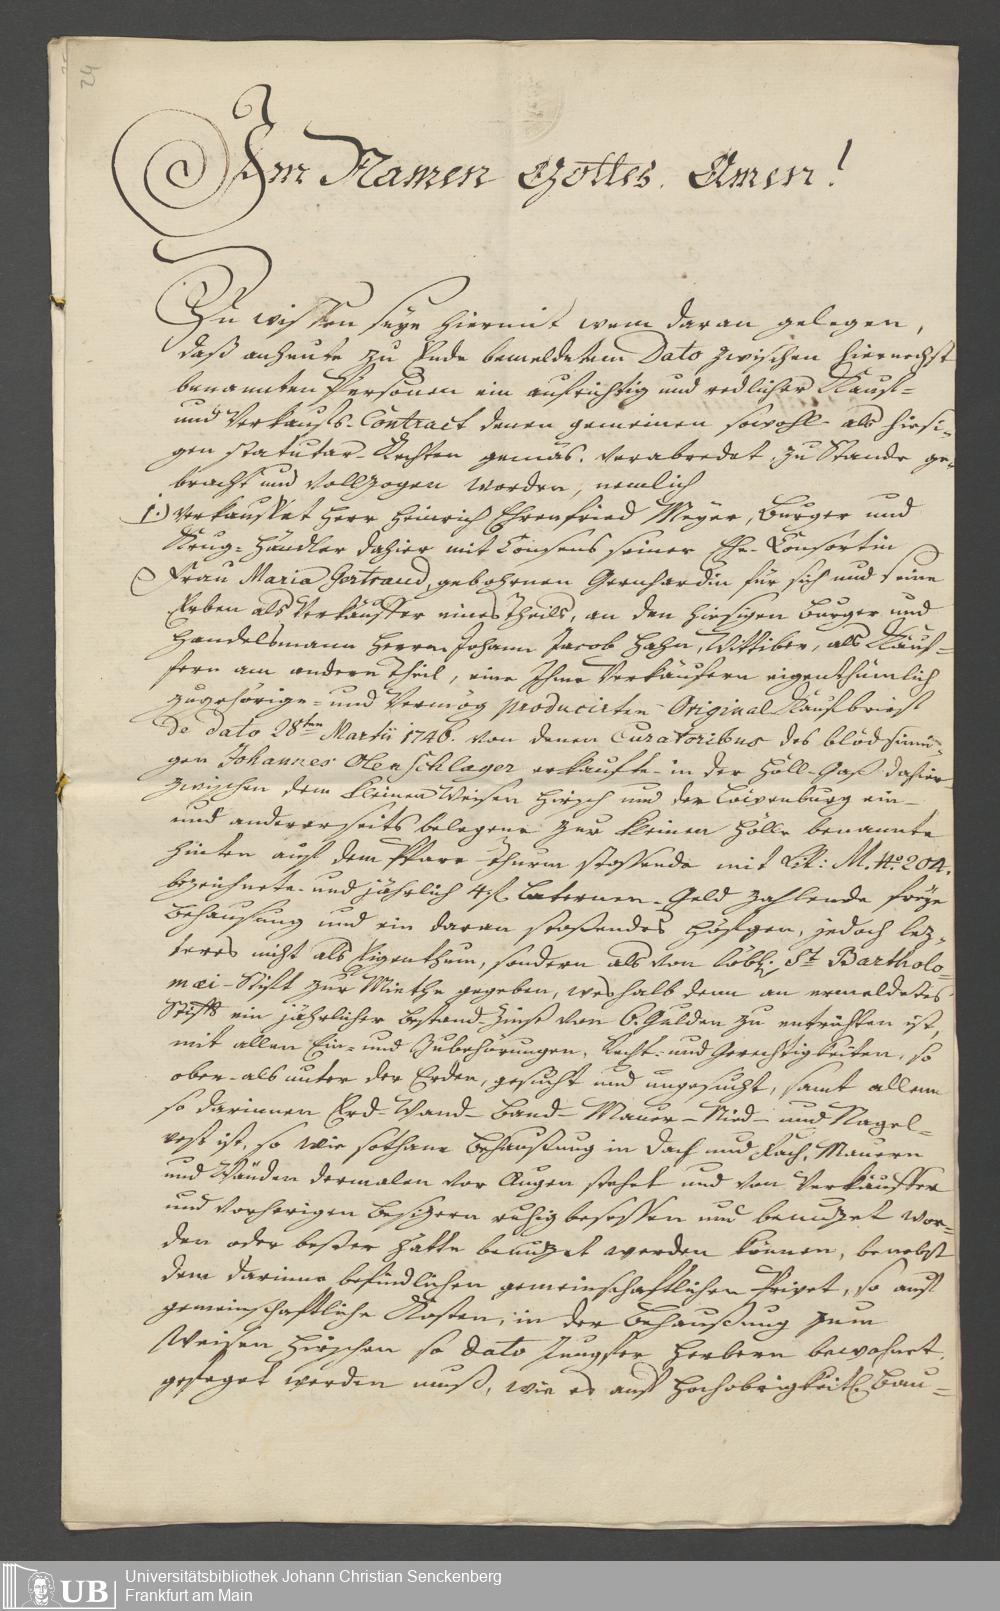 24
Im Namen Gottes. Amen!
Zu wissen seye hiermit wem daran gelegen,
daß anheute zu Ende bemeldetem Dato zwischen hiernechst
benannten Persohnen ein aufrichtig und redlicher Kauf-
und Verkaufs-Contract denen gemeinen sowohl als hiesi-
gen statutar-Rechten gemäs, verabredet, zu Stande ge-
bracht und vollzogen worden, nemlich
1.) Verkauffet Herr Heinrich Ehrenfried Meyer, Burger und
Krug-Händler dahier mit Consens seiner Ehe-Consortin
Frau Maria Gertraud, gebohrnen Gernhardin für sich und seine
Erben als Verkäuffer eines Theils, an den hiesigen Burger und
Handelsmann Herrn Johann Jacob Hahn, Wittiber, als Käuf-
fern am andern Theil, eine Ihme Verkäufern eigenthümlich
zugehörige- und vermög producirten Original Kaufbriefs
de dato 28ten Martii 1746. von denen Curatoribus des blödsinni-
gen Johannes Olenschlager erkaufte- in der Höll-Gaß dahier
zwischen dem kleinen Weisen Hirsch und der Löwenburg ein-
und andererseits belegene zur kleinen Hölle benannte
hinten auf den Pfarr-Thurn stosende mit Lit: M. No. 204.
bezeichnete- und jährlich 4 f. Laternen-Geld zahlende freye
Behausung und ein daran stoßendes Höfgen, jedoch lez-
teres nicht als Eigenthum, sondern als von löbl. St. Bartholo-
mæi-Stift zur Miethe gegeben, weshalb denn an ermeldetes
Stifft ein jährlicher Bestand-Zinß von 6. Gulden zu entrichten ist,
mit allen Ein- und Zubehörungen, Recht- und Gerechtigkeiten, so
ober- als unter der Erden, gesucht und ungesucht, samt allem
so darinnen Erd- Wand- Band- Mauer- Nied- und Nagel-
vest ist, so wie sothane Behaußung in Dach und Fach, Mauern
und Wänden dermalen vor Augen stehet und von Verkäuffer
und vorherigen Besizern ruhig besessen und benuzet wor-
den oder beßer hätte benuzet werden können, benebst
dem darinne befindlichen gemeinschaftlichen Privet, so auf
gemeinschaftliche Kosten, in der Behaußung zum
Weisen Hirschen so dato Jungfer Herbern bewohnet,
gefeget werden muß, wie es auf Hochobrigkeitl. Bau-
UB
Universitätsbibliothek Johann Christian Senckenberg
Frankfurt am Main